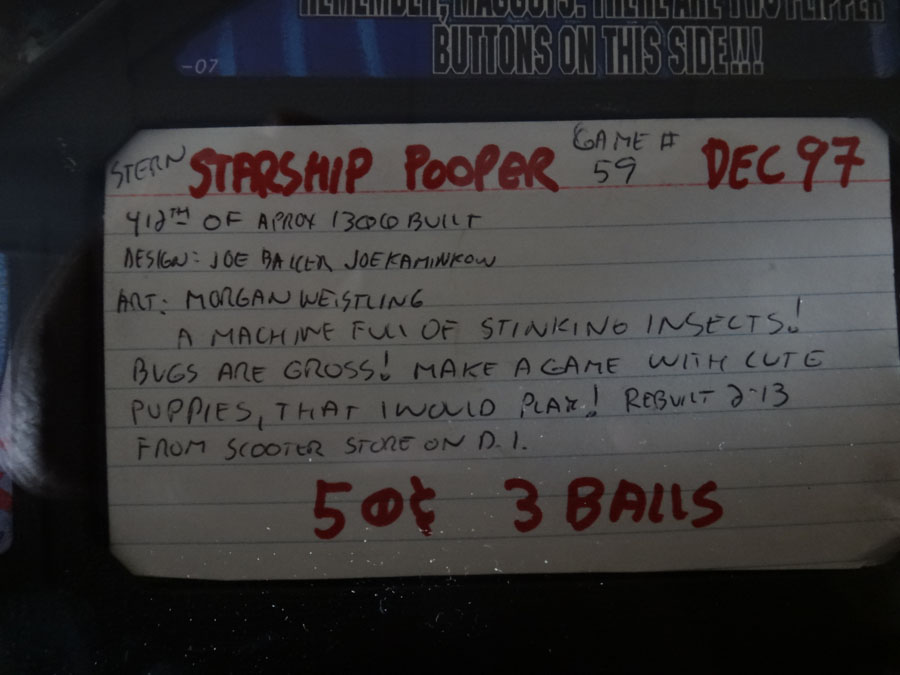 REMEMBER, MAGGOTS: THERE ARE TWO FLIPPER
BUTTONS ON THIS SIDE!!!
-07
STERN STARSHIP POOPER GAME # 59 DEC 97
412TH OF APROX 1300 BUILT
DESIGN: JOE BALCER JOE KAMINKOW
ART: MORGAN WEISTLING
A MACHINE FULL OF STINKING INSECTS!
BUGS ARE GROSS! MAKE A GAME WITH CUTE
PUPPIES, THAT I WOULD PLAY! REBUILT 2-13
FROM SCOOTER STORE ON D.I.
50¢ 3 BALLS